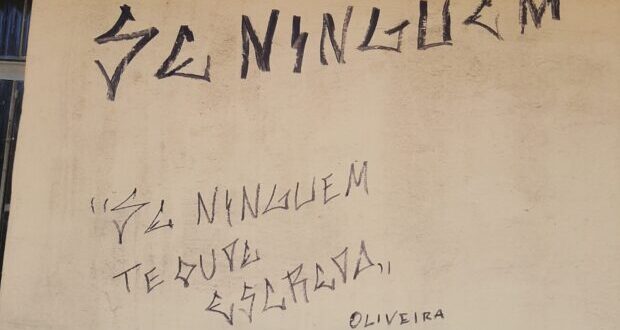 SE NINGUEM
"SE NINGUEM
TE OUVE
ESCREVA"
OLIVEIRA